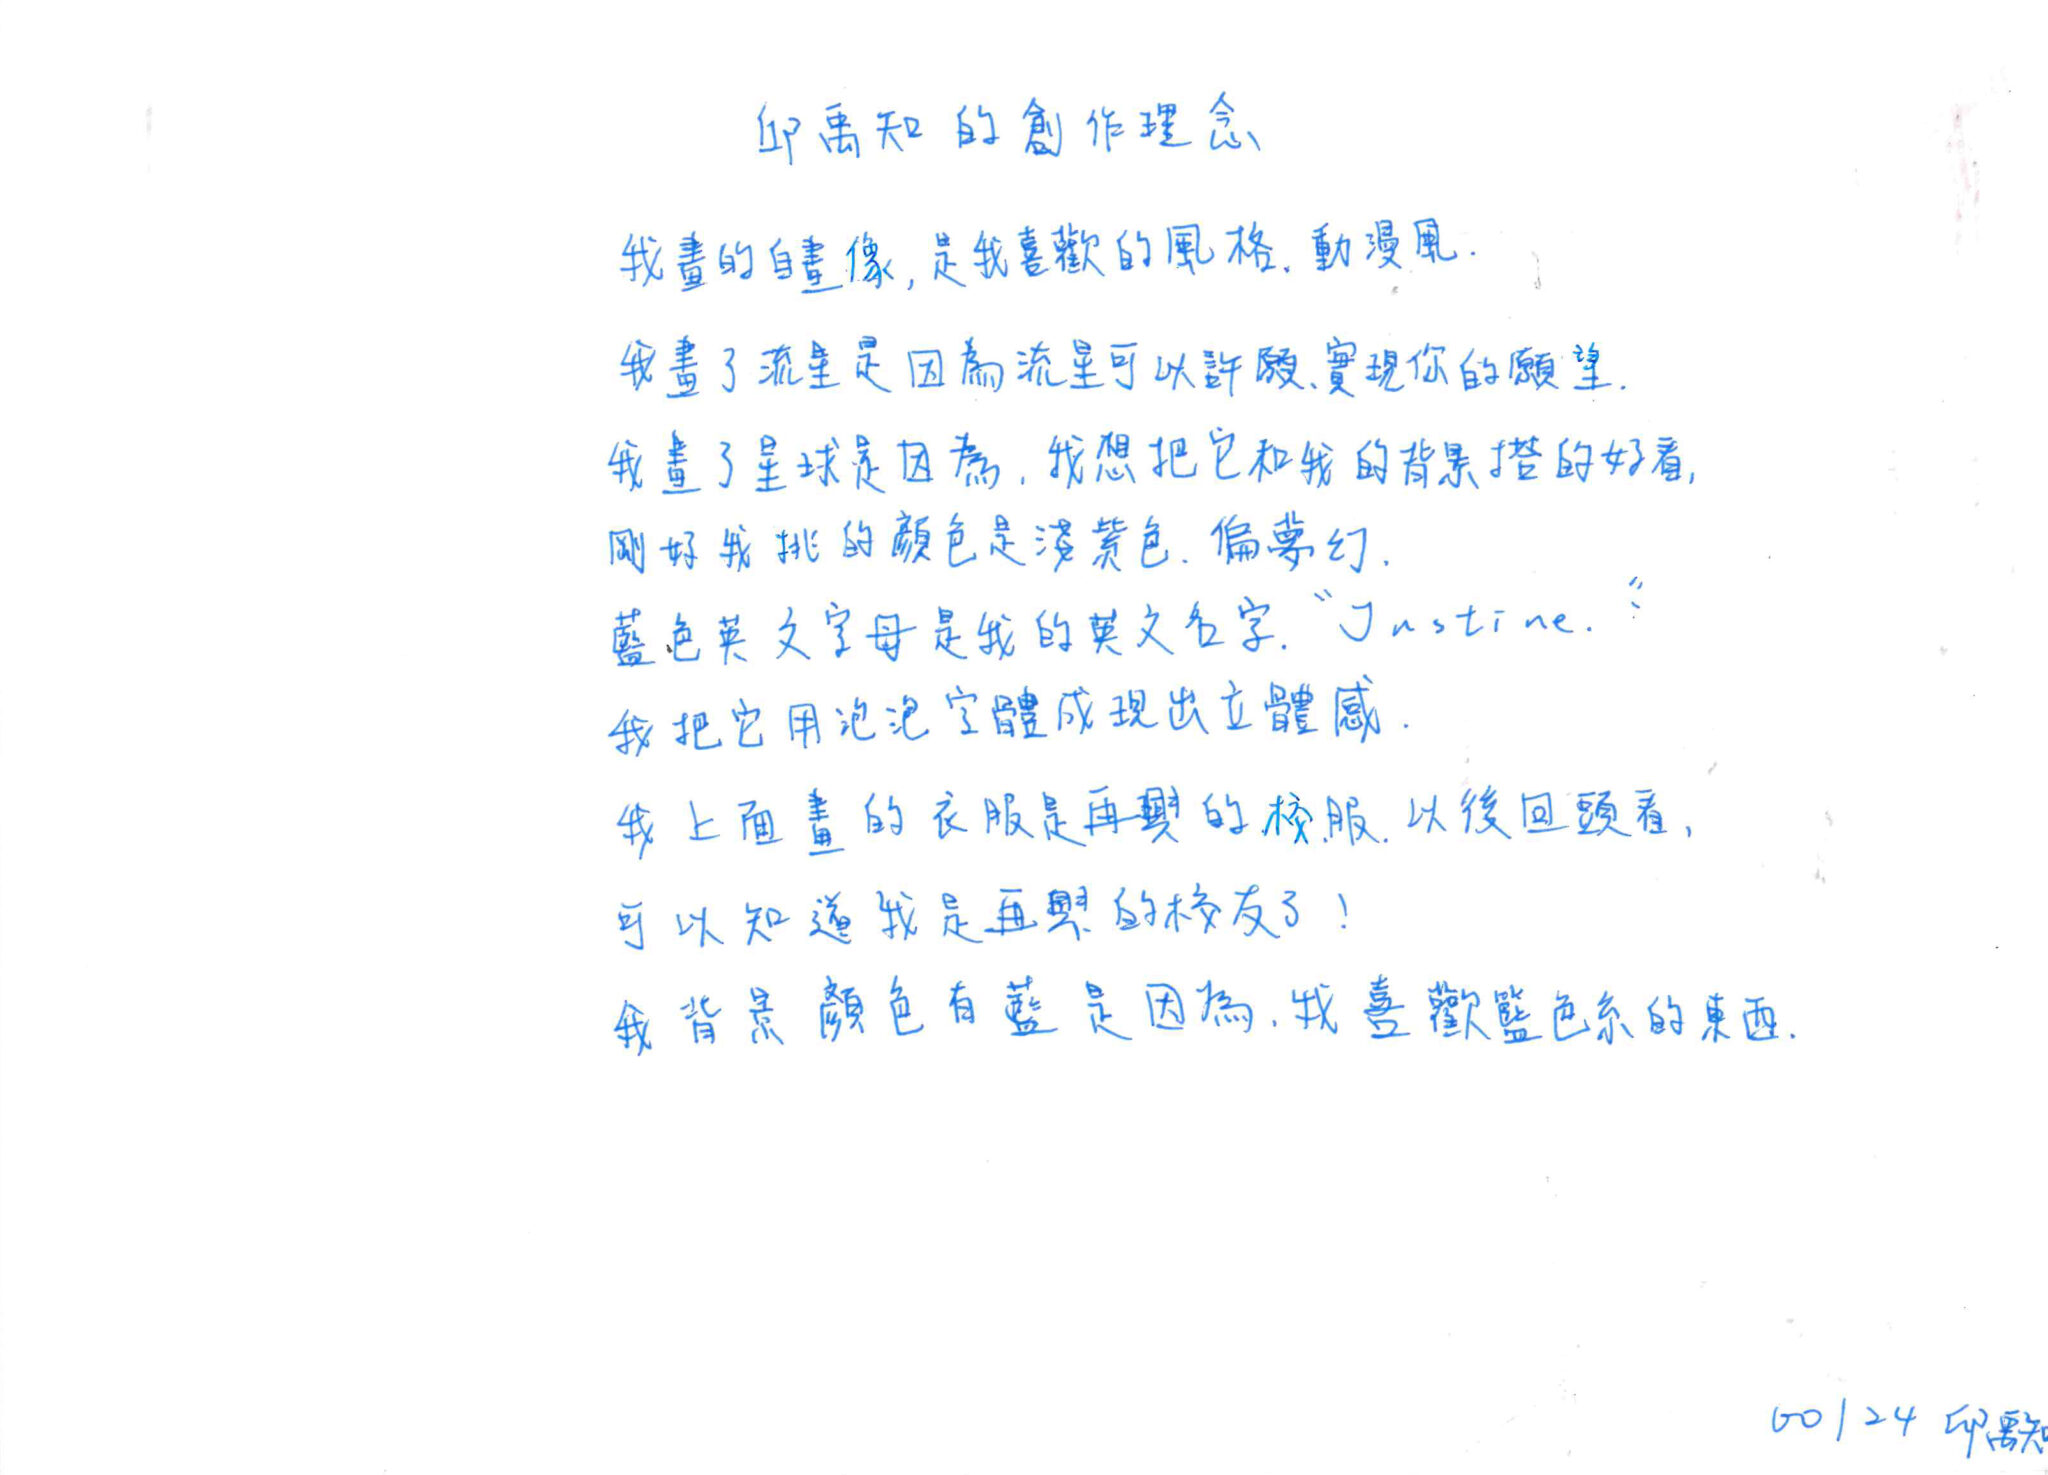 邱禹知的創作理念
我畫的自畫像,是我喜歡的風格.動漫風.
我畫了流星是因為流星可以許願、實現你的願望.
我畫了星球是因為,我想把它和我的背景搭的好看,
剛好我挑的顏色是淺紫色.偏夢幻.
藍色英文字母是我的英文名字."Justine."
我把它用泡泡字體成現出立體感.
我上面畫的衣服是再興的校服.以後回頭看,
可以知道我是再興的校友了!
我背景顏色有藍是因為,我喜歡籃色系的東西.
60124 邱禹知